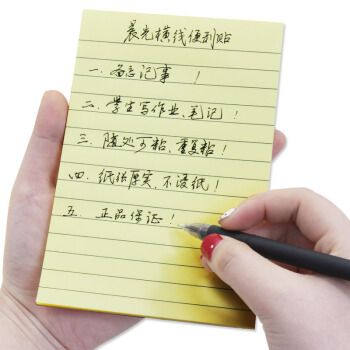 晨光横线便利贴
一. 备忘记事 !
二. 学生写作业、笔记!
三. 随处可粘, 重复粘!
四. 纸张厚实, 不浸纸!
五. 正品保证!